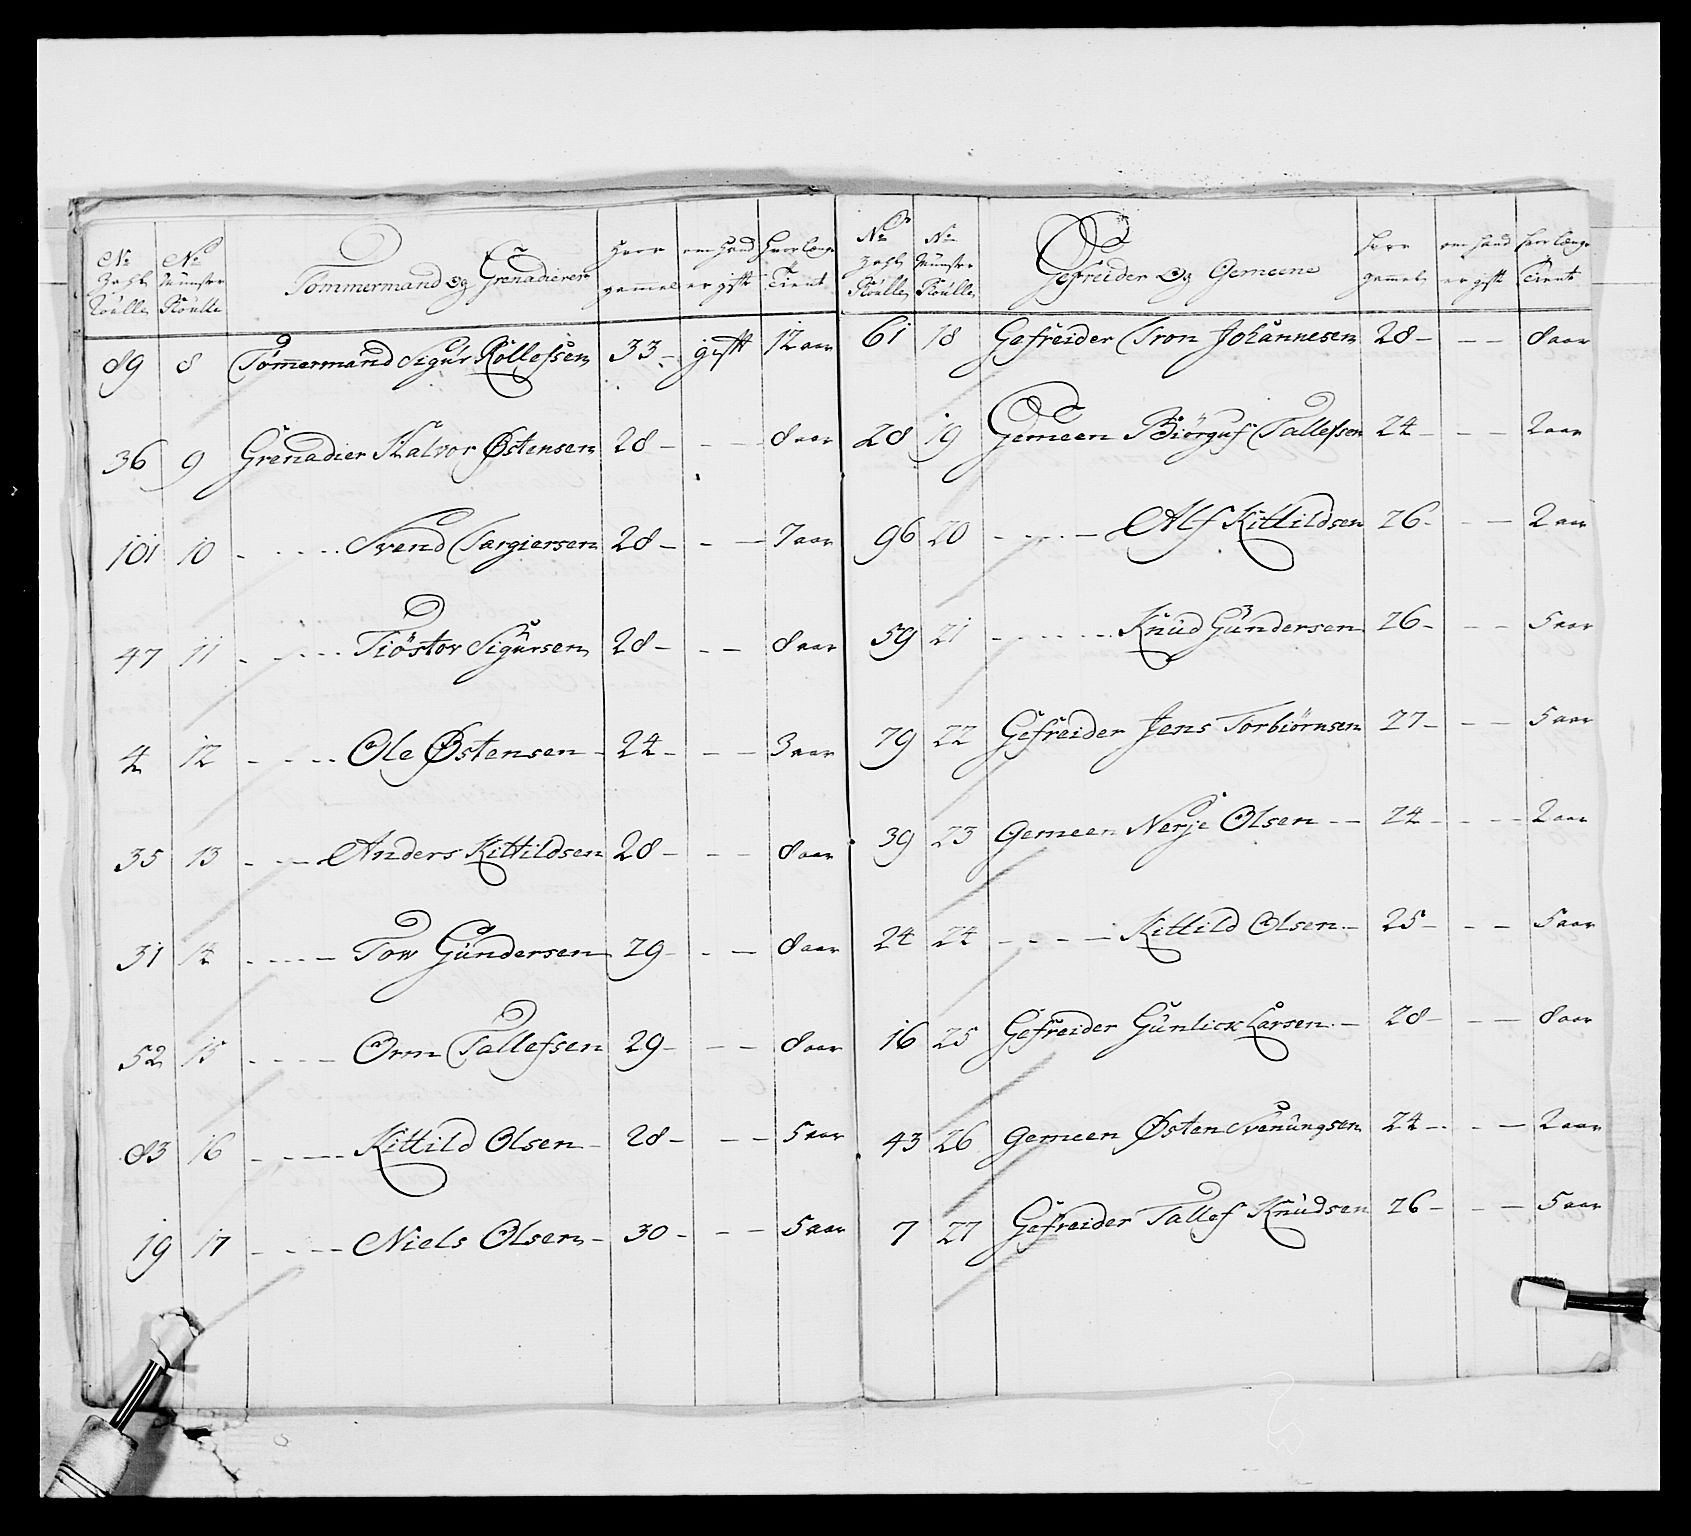 No Zahl Roulle | No Münster Roulle | Tømmermand og Grenadierer | Hvor gammel | om hand er gift | Hvor længe Tient
89 | 8 | Tømmermand Sigur Rollefsen | 33 - | gift | 12 aar
36 | 9 | Grenadier Halvor Østensen | 28 - | - - | 8 aar
101 | 10 | - - - - Svend Targiersen | 28 - | - - | 7 aar
47 | 11 | - - - - Tiøstov Sigursen | 28 - | - - | 8 aar
4 | 12 | - - - - Ole Østensen - | 24 - | - - | 3 aar
35 | 13 | - - - Anders Kittildsen | 28 - | - - | 8 aar
31 | 14 | - - - - Tow Gündersen | 29 - | - - | 8 aar
52 | 15 | - - - - Orm Tallefsen | 29 - | - - | 8 aar
83 | 16 | - - - - Kittild Olsen - | 28 - | - - | 5 aar
19 | 17 | - - - - Niels Olsen - | 30 - | - - | 5 aar
No Zahl Roulle | No Münster Roulle | Gefreider Og Gemeene | Hvor gammel | om hand er gift | Hvor længe Tient
61 | 18 | Gefreider Tron Johannesen | 28 - | - - | 8 aar
28 | 19 | Gemeen Biörguf Tallefsen | 24 - | - - | 2 aar
96 | 20 | - - - - Alf Kittildsen | 26 - | - - | 2 aar
59 | 21 | - - - - Knud Gündersen | 26 - | - - | 5 aar
79 | 22 | Gefreider Jens Torbiörnsen | 27 - | - - | 5 aar
39 | 23 | Gemeen Nerje Olsen - - | 24 - | - - | 2 aar
24 | 24 | - - - - Kittild Olsen - | 25 - | - - | 5 aar
16 | 25 | Gefreider Günlick Larsen - | 28 - | - - | 8 aar
43 | 26 | Gemeen Østen Svenüngsen | 24 - | - - | 2 aar
7 | 27 | Gefreider Tallef Knudsen | 26 - | - - | 5 aar